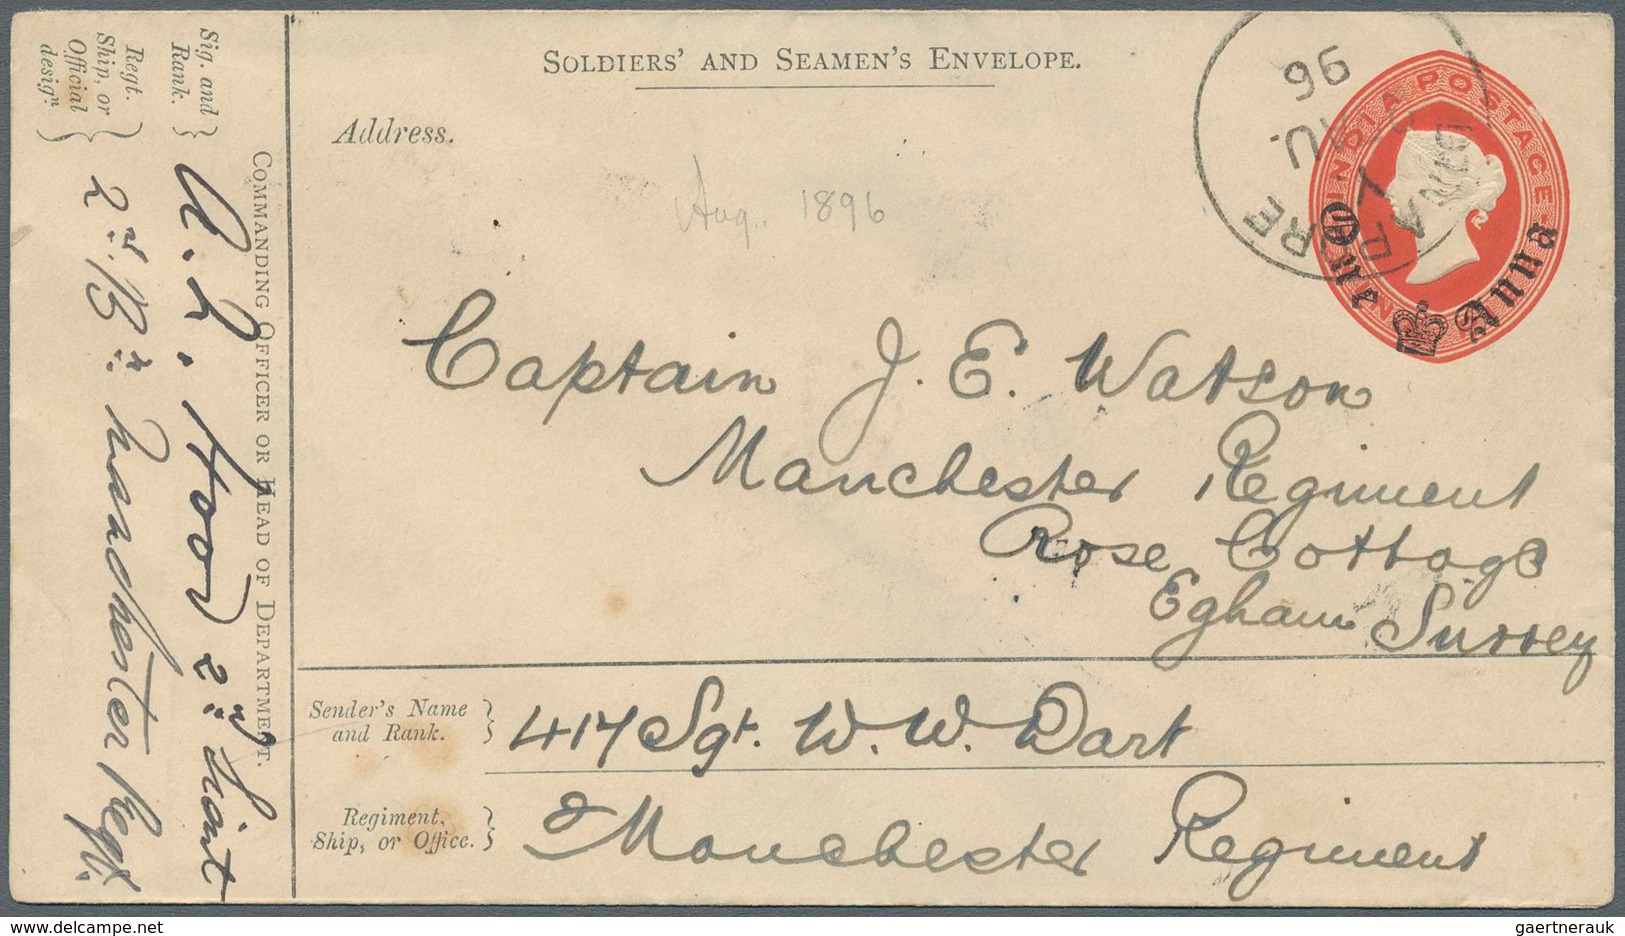 SOLDIERS' AND SEAMEN'S ENVELOPE.
Address.
Aug. 1896
96
INDIA POSTAGE
One Anna
Captain J. E. Watson
Manchester Regiment
Rose Cottage
Egham Surrey
Sender's Name and Rank.
417 Sgt. W. W. Dart
Regiment, Ship, or Office.
Manchester Regiment
COMMANDING OFFICER OR HEAD OF DEPARTMENT.
Sig. and Rank.
2nd Lieut
Regt. Ship, or Official desigⁿ.
2nd Bn: Manchester Regt.
gaertnerauk